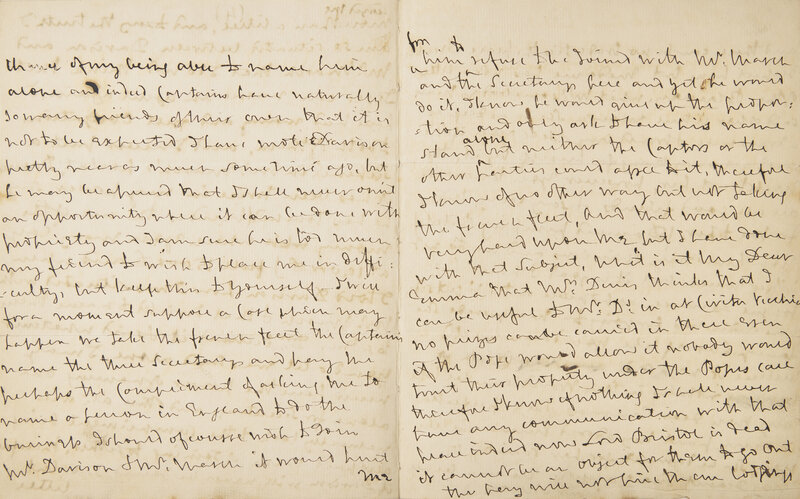 chance of my being able to name him
alone and indeed Captains have naturally
so many friends of their own that it is
not to be expected I have wrote Davison
pretty near as much some time ago, but
he may be assured that I shall never omit
an opportunity where it can be done with
propriety and I am sure he is too much
my friend to wish to place me in diffi:
culty, but keep this to yourself. I will
for a moment suppose a Case which may
happen we take the french fleet the Captains
name the three Secretarys and pay me
perhaps the Compliment of asking me to
name a person in England to do the
business I should of course wish to Join
Mr. Davison & Mr. Marsh it would hurt
me
for to
him refuse to be Joined with Mr. Marsh
and the Secretarys here and yet he would
do it, I know he would give up the propor-
=tion and only ask to have his name
stand alone but neither the Captors or the
other parties could agree to it, therefore
I know of no other way but not taking
the french fleet, and that would be
very hard upon me but I have done
with that subject, what is it My Dear
Emma that Mrs. Denis thinks that I
can be useful to Mr. Ds. in at Civita Vecchia
no prizes can be carried in there even
if the Pope would allow it nobody would
trust their property under the Popes care
therefore I know of nothing I shall never
have any communication with that
place indeed now Lord Bristol is dead
it cannot be an object for them to go out
the they will not have the